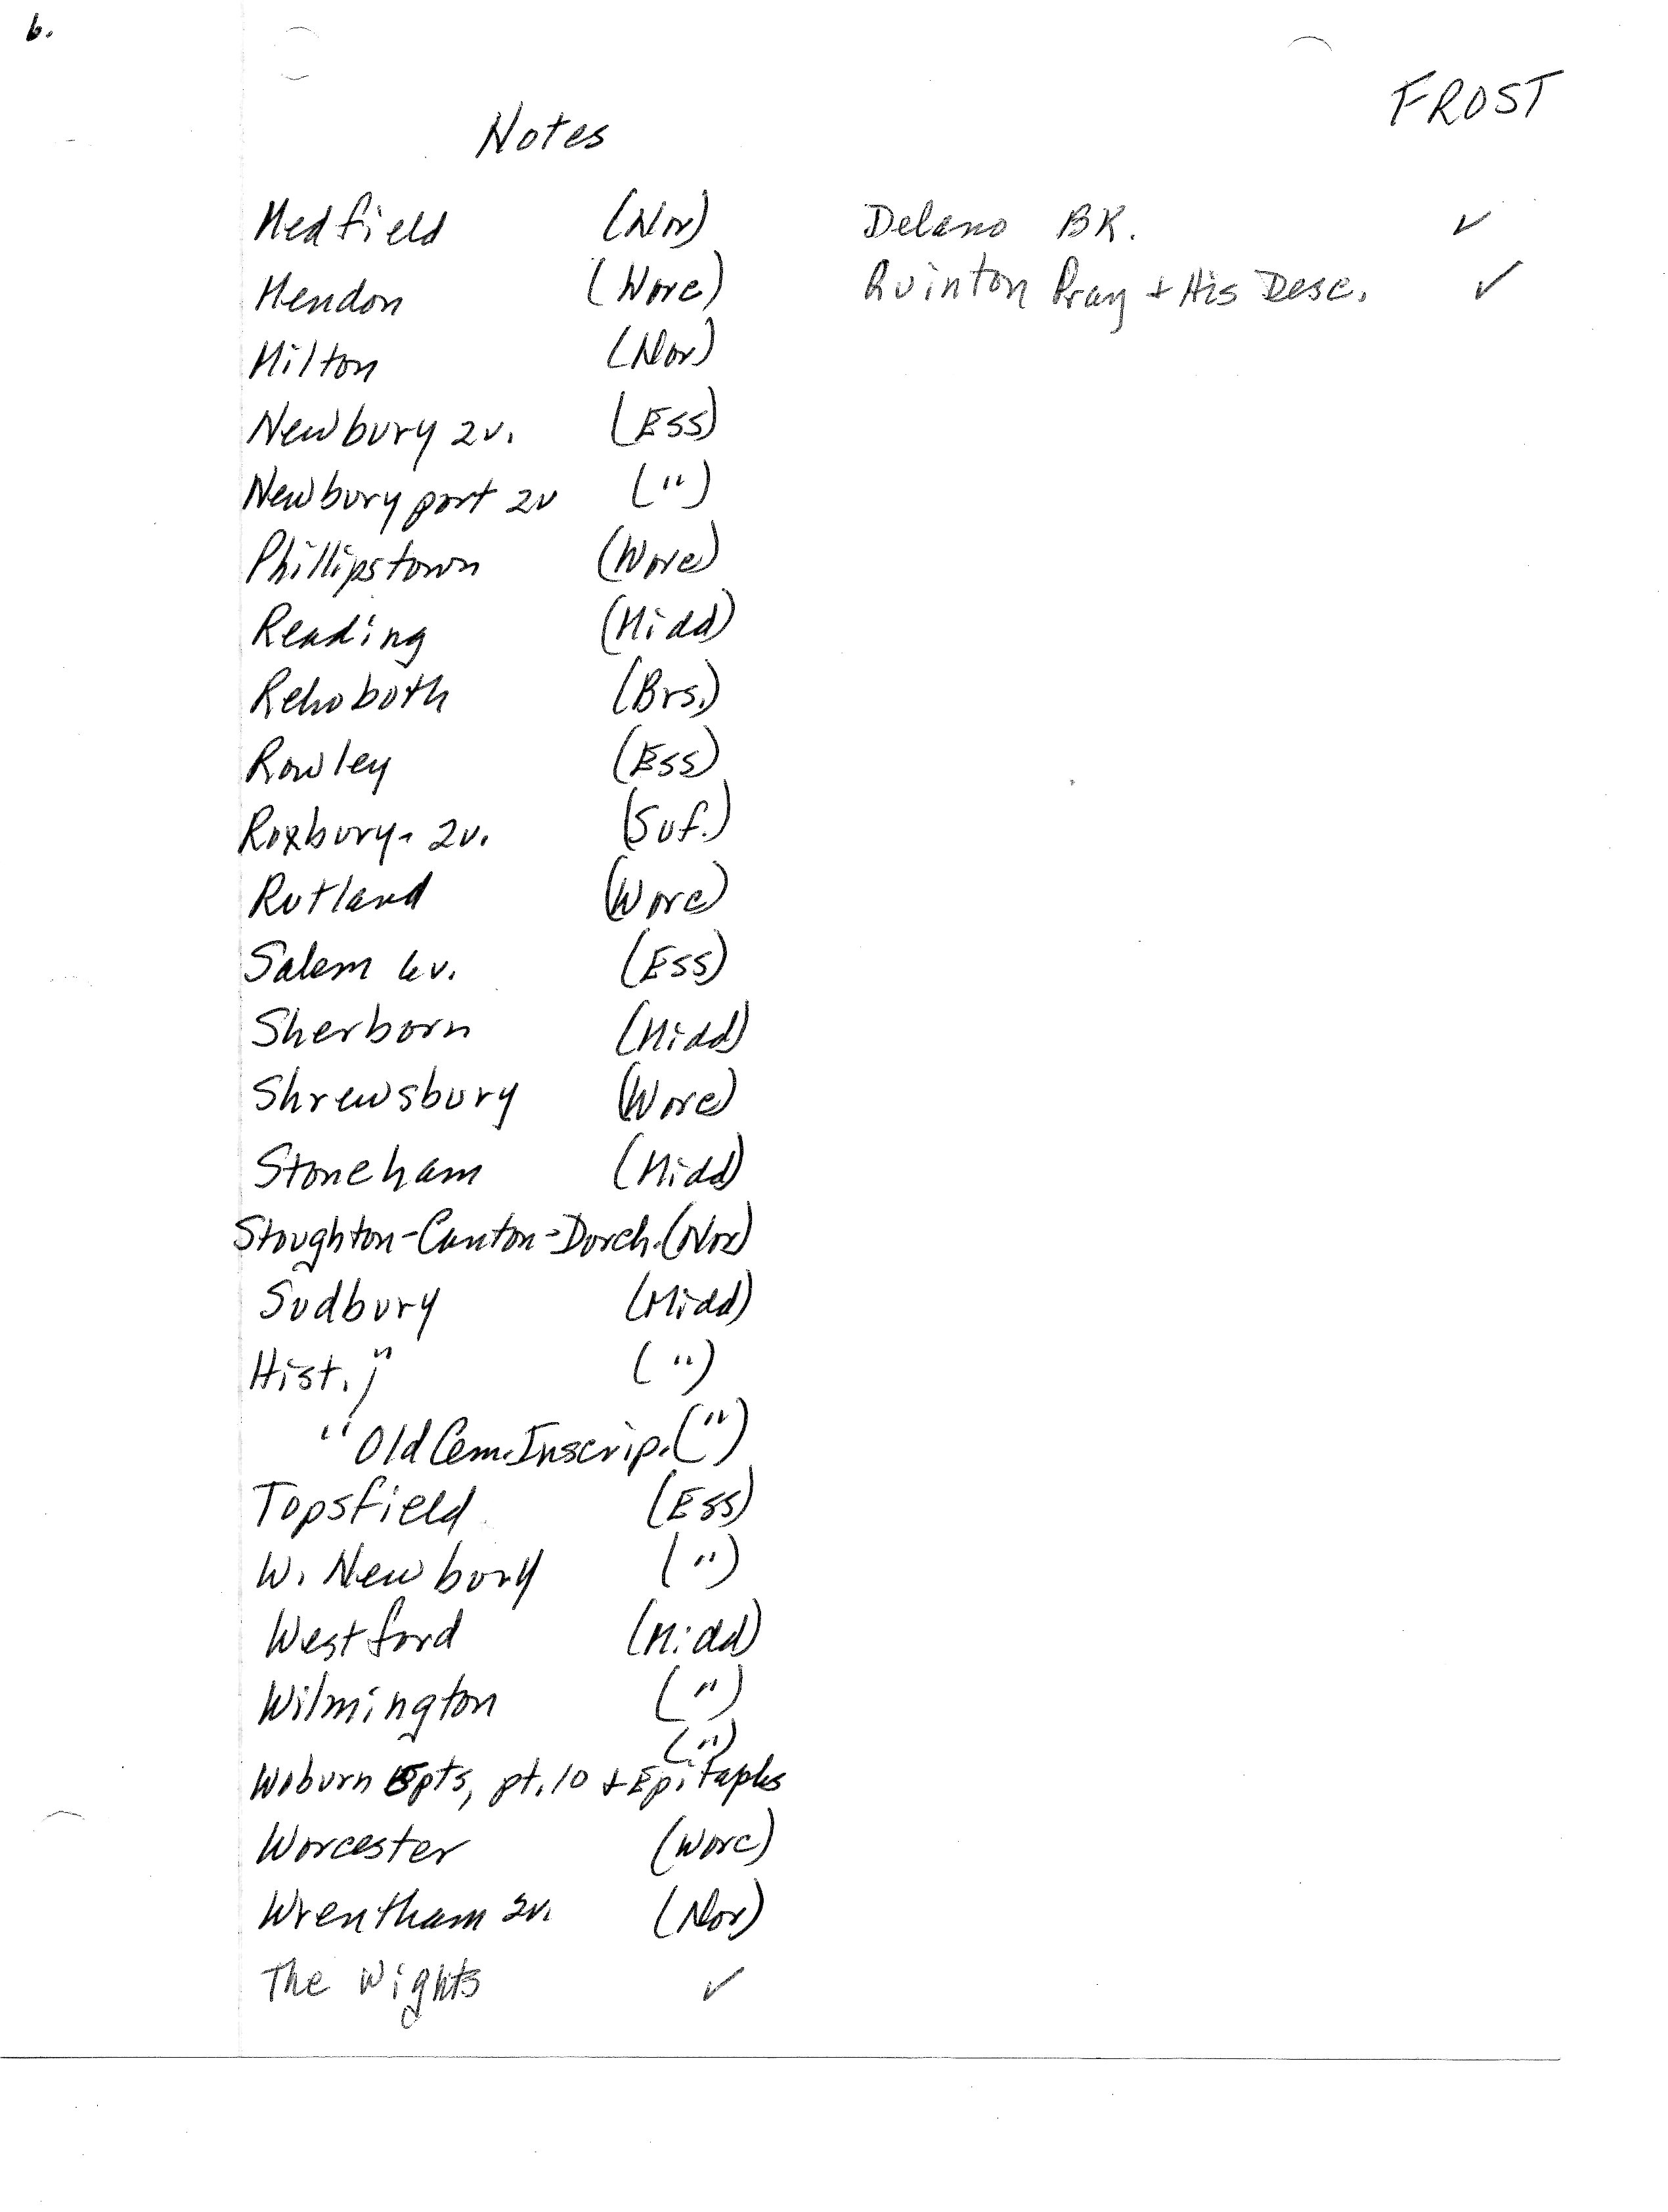 6.
FROST
Notes
Medfield (Nor) Delano BK. ✓
Mendon (Worc) Quinton Pray + His Desc. ✓
Milton (Nor)
Newbury 2v. (Ess)
Newburyport 2v (")
Phillipstown (Worc)
Reading (Midd)
Rehoboth (Brs.)
Rowley (Ess)
Roxbury- 2v. (Suf.)
Rutland (Worc)
Salem 6v. (Ess)
Sherborn (Midd)
Shrewsbury (Worc)
Stoneham (Midd)
Stoughton-Canton-Dorch. (Nor)
Sudbury (Midd)
Hist. " (")
" Old Cem. Inscrip. (")
Topsfield (Ess)
W. Newbury (")
Westford (Midd)
Wilmington (")
(")
Woburn pts, pt. 10 + Epitaphs
Worcester (Worc)
Wrentham 2v. (Nor)
The Wights ✓